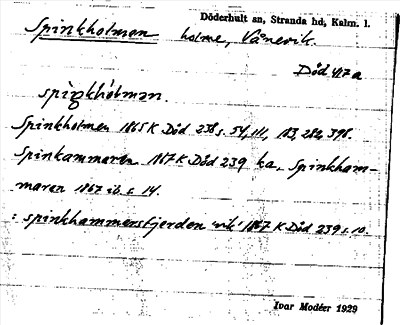 Döderhult sn, Stranda hd, Kalm. l.
Spinkholmen holme, Vånevik.
Död 417a
spìŋkhólman.
Spinkholmen 1865 K Död 238 s. 54, 111, 183, 282, 398.
Spinkammaren 1867 K Död 239 ka, Spinkham-
maren 1867 ib. s. 14.
: spinkhammersfjerden 'vik' 1867 K Död 239 s. 10.
Ivar Modéer 1929